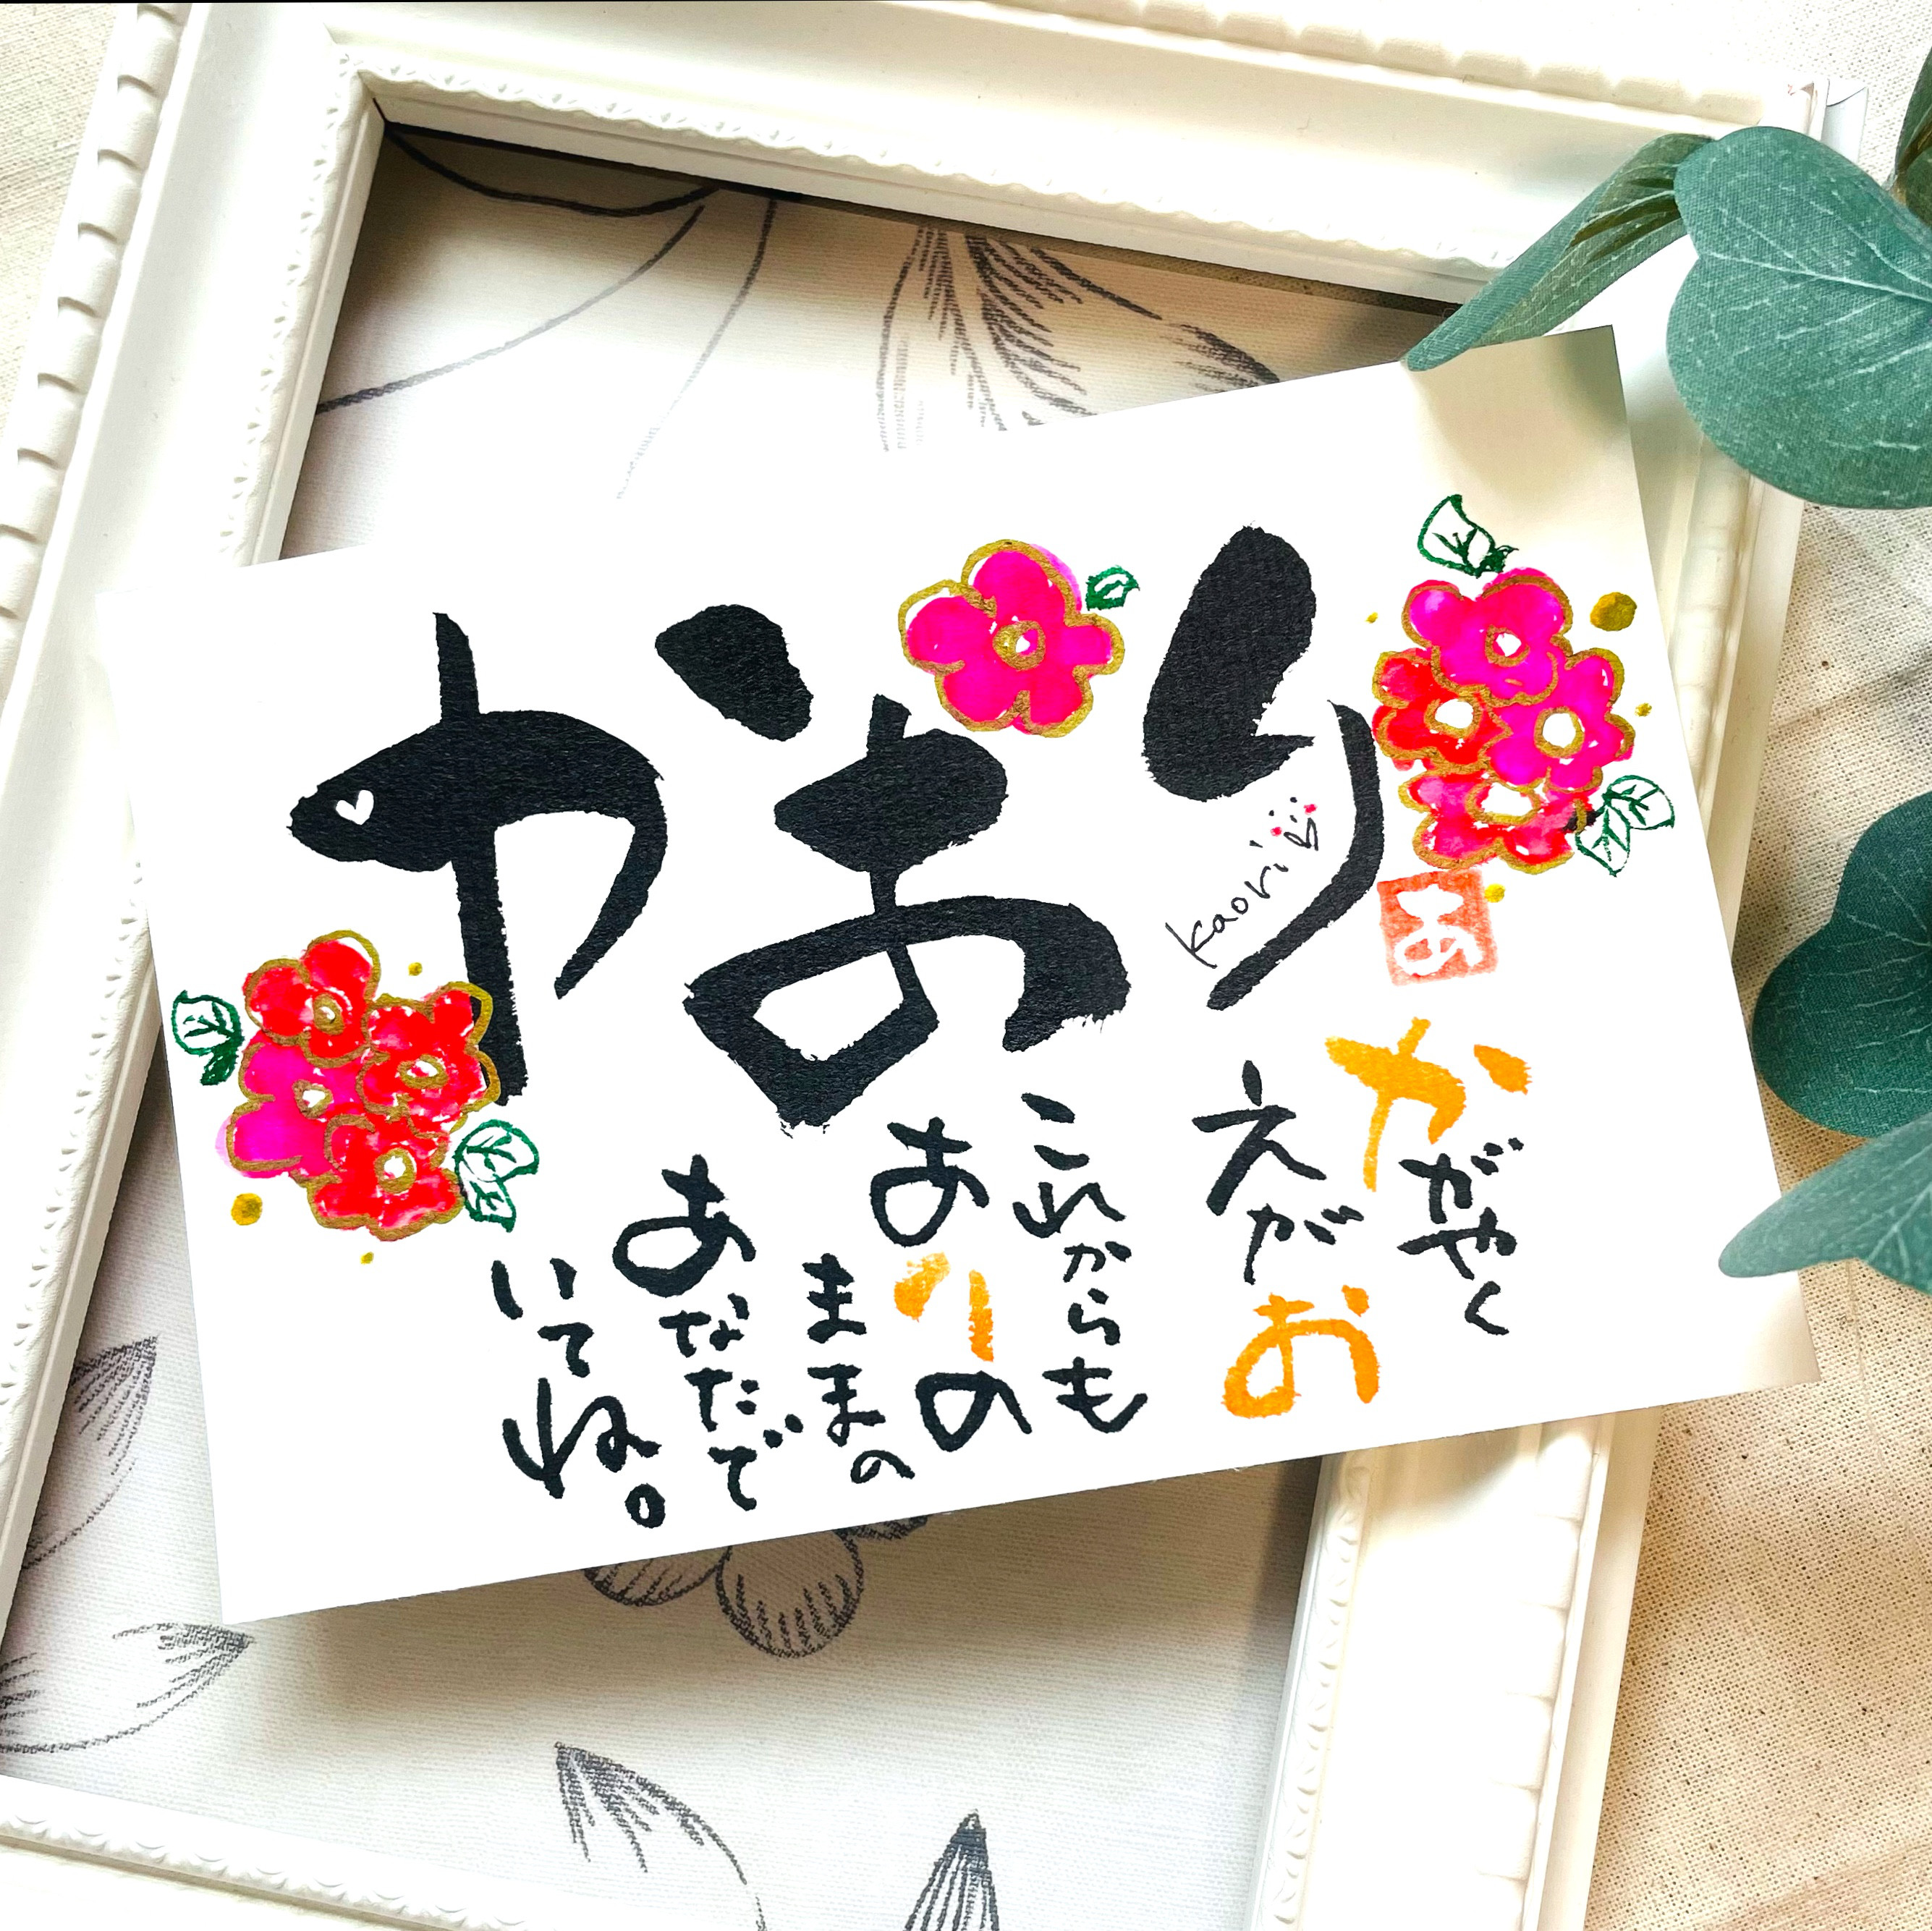 かおり
kaori
あ
かがやく
えがお
これからも
ありの
ままの
あなたで
いてね。